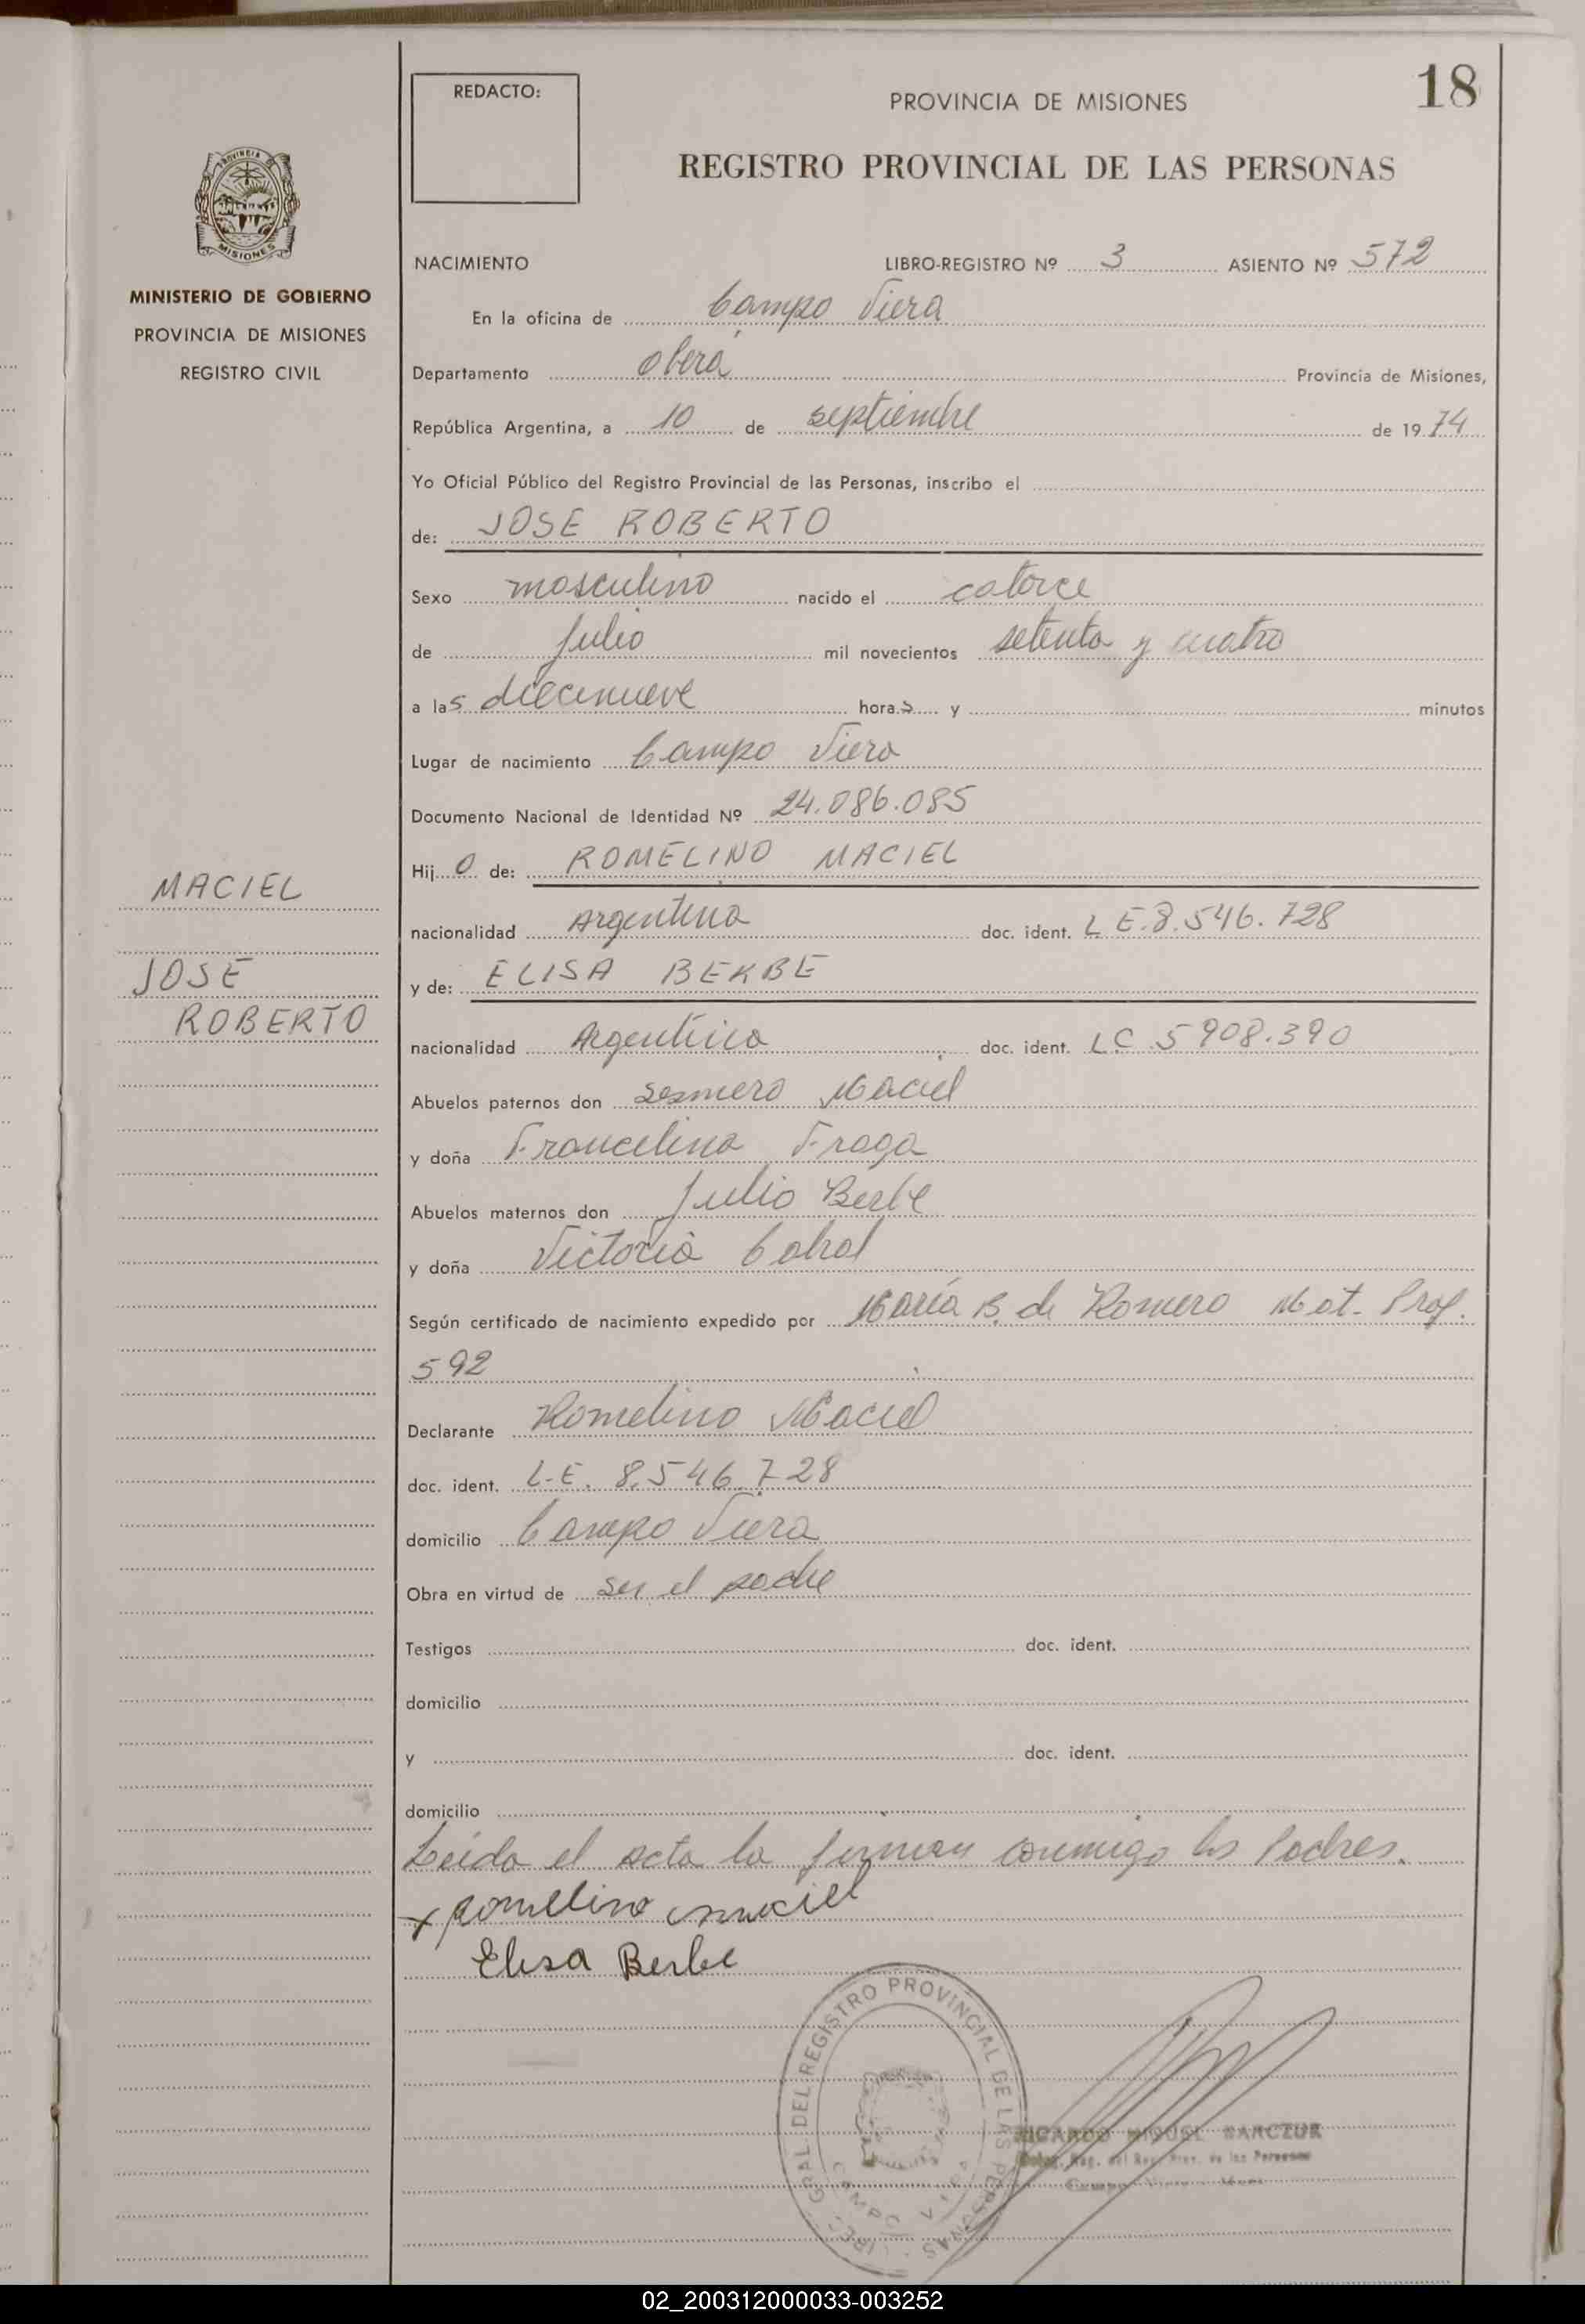 18
REDACTO:
PROVINCIA DE MISIONES
REGISTRO PROVINCIAL DE LAS PERSONAS
PROVINCIA DE
MISIONES
MINISTERIO DE GOBIERNO
PROVINCIA DE MISIONES
REGISTRO CIVIL
NACIMIENTO LIBRO-REGISTRO Nº 3 ASIENTO Nº 572
En la oficina de Campo Viera
Departamento Oberá Provincia de Misiones,
República Argentina, a 10 de septiembre de 1974
Yo Oficial Público del Registro Provincial de las Personas, inscribo el
de: JOSE ROBERTO
Sexo masculino nacido el catorce
de julio mil novecientos setenta y cuatro
a las diecinueve horas y minutos
Lugar de nacimiento Campo Viera
Documento Nacional de Identidad Nº 24.086.085
Hijo de: ROMELINO MACIEL
MACIEL
nacionalidad Argentina doc. ident. L E. 8.546.728
JOSE
y de: ELISA BERBE
ROBERTO
nacionalidad Argentina doc. ident. L C 5908.390
Abuelos paternos don Maciel
y doña Francelina Fraga
Abuelos maternos don Julio Berbe
y doña Victoria Cabral
Según certificado de nacimiento expedido por María B. de Romero Mat. Prof.
592
Declarante Romelino Maciel
doc. ident. L.E. 8.546.728
domicilio Campo Viera
Obra en virtud de ser el padre
Testigos doc. ident.
domicilio
y doc. ident.
domicilio
Leida el acta la firman conmigo los Padres.
x Romelino maciel
Elisa Berbe
GRAL. DEL REGISTRO PROVINCIAL DE LAS PERSONAS
RICARDO MIGUEL
02_200312000033-003252